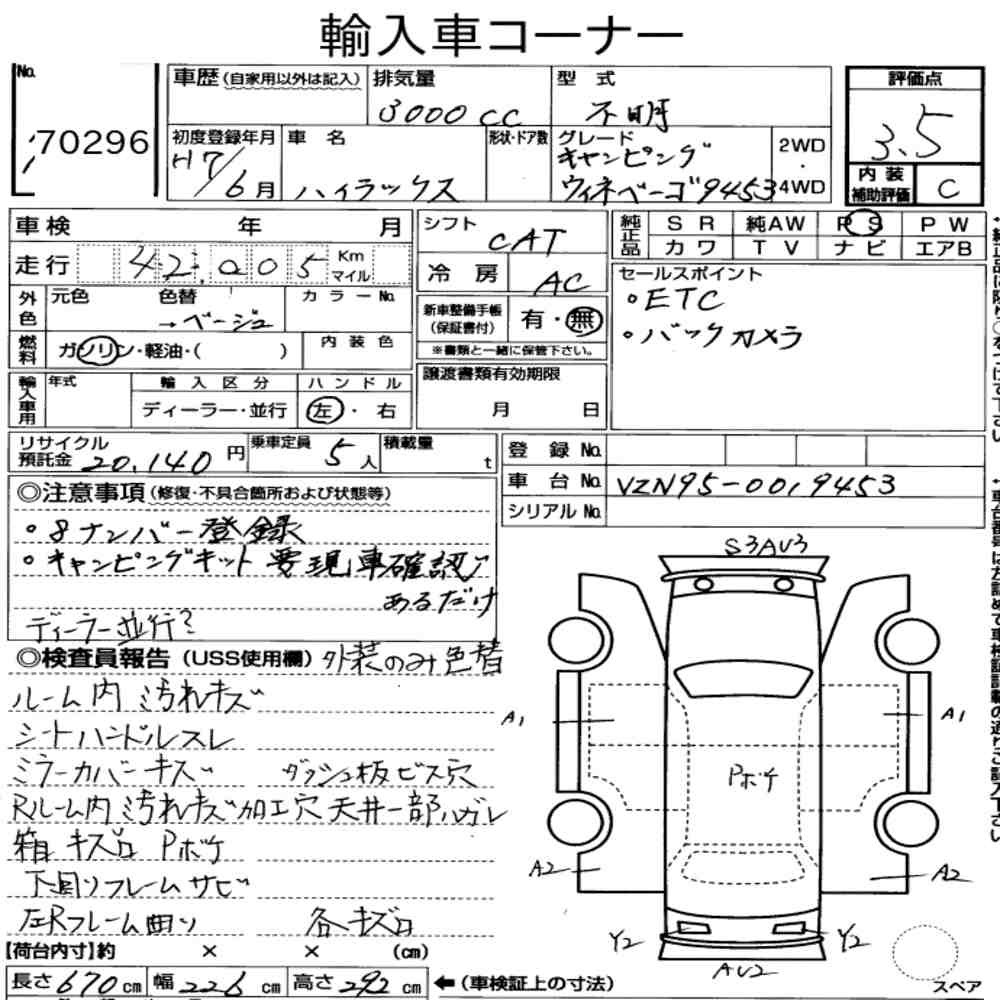 輸入車コーナー
No. 70296
車歴 (自家用以外は記入) 排気量 3000cc 型式 不明
評価点 3.5
初度登録年月 H7/6月 車名 ハイラックス 形状・ドア数 グレード キャンピング ウィネベーゴ9453 2WD・4WD
内装補助評価 C
車検 年 月 シフト CAT 純正品 SR 純AW PS PW
カワ TV ナビ エアB
走行 42,005 Km マイル 冷房 AC
セールスポイント
・ETC
・バックカメラ
外色 元色 色替 →ベージュ カラーNo.
新車整備手帳 (保証書付) 有・無
※書類と一緒に保管下さい。
燃料 ガソリン・軽油・( ) 内装色
輸入車用 年式 輸入区分 ハンドル
ディーラー・並行 左・右
譲渡書類有効期限
月 日
リサイクル預託金 20,140円 乗車定員 5人 積載量 t
登録No.
車台No. VZN95-0019453
シリアルNo.
◎注意事項 (修復・不具合箇所および状態等)
・8ナンバー登録
・キャンピングキット 要現車確認
あるだけ
ディーラー並行?
◎検査員報告 (USS使用欄) 外装のみ色替
ルーム内 汚れキズ
シートハンドルスレ
ミラーカバーキズ ダッシュ板ビス穴
Rルーム内 汚れキズ加工穴 天井一部ハガレ
箱 キズロ Pボケ
下回りフレームサビ
左Rフレーム曲り 各キズロ
【荷台内寸】約 × × (cm)
長さ670cm 幅226cm 高さ292cm ←(車検証上の寸法)
S3AV3
A1
A1
Pボケ
A2
A2
Y2
Y2
AV2
スペア